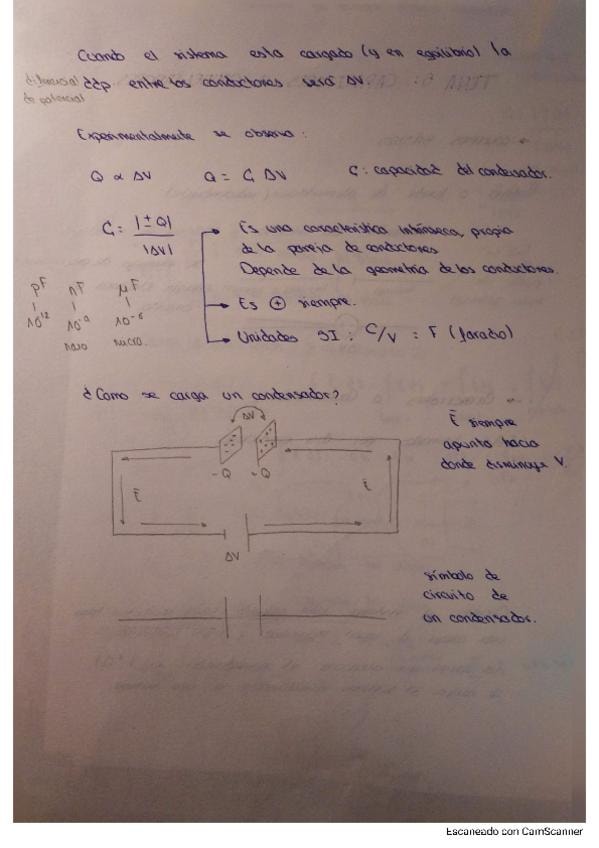 Cuando el sistema esta cargado (y en equilibrio) la
ddp entre los conductores será ΔV
diferencial
de potencial
Experimentalmente se observa:
Q ∝ ΔV Q = C ΔV C: capacidad del condensador.
C = |±Q| / |ΔV|
Es una característica intrínseca, propia
de la pareja de conductores
Depende de la geometría de los conductores.
Es ⊕ siempre.
Unidades SI: C/V = F (faradio)
pF nF μF
10⁻¹² 10⁻⁹ 10⁻⁶
nano micro.
¿Como se carga un condensador?
ΔV
-Q +Q
E E
ΔV
E siempre
apunta hacia
donde disminuye V.
símbolo de
circuito de
un condensador.
Escaneado con CamScanner